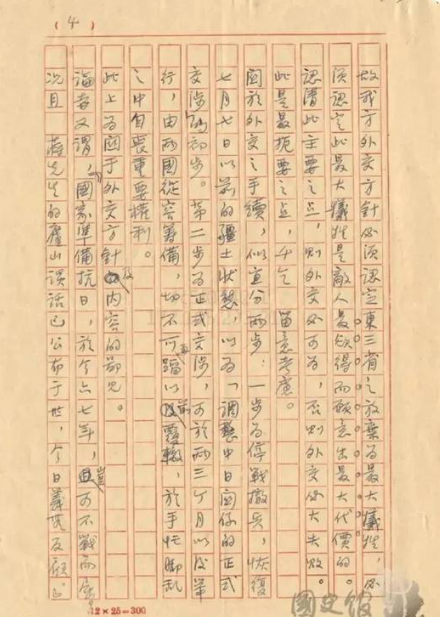 (4)
故我方外交方針必須認定東三省之放棄為最大犧牲,必
須認定此最大犧牲是敵人最欲得而願意出最大代價的。
認清此主要之点,則外交必可為,否則外交必大失敗。
此是最扼要之点,千乞 留意考慮。
關於外交之手續,似宜分兩步:一步為停戰撤兵,恢復
七月七日以前的疆土狀態,以為「調整中日關係的正式
交涉」的初步。第二步為正式交涉,可於兩三个月以後舉
行,由兩國從容籌備,切不可再蹈以前覆轍,於手忙脚乱
之中自喪重要權利。
此上為關于外交方針及內容的鄙見。
論者又謂,國家準備抗日,於今六七年,豈可不戰而屈。
況且 蔣先生的廬山談話已公布于世,今日若
12×25=300
國史館